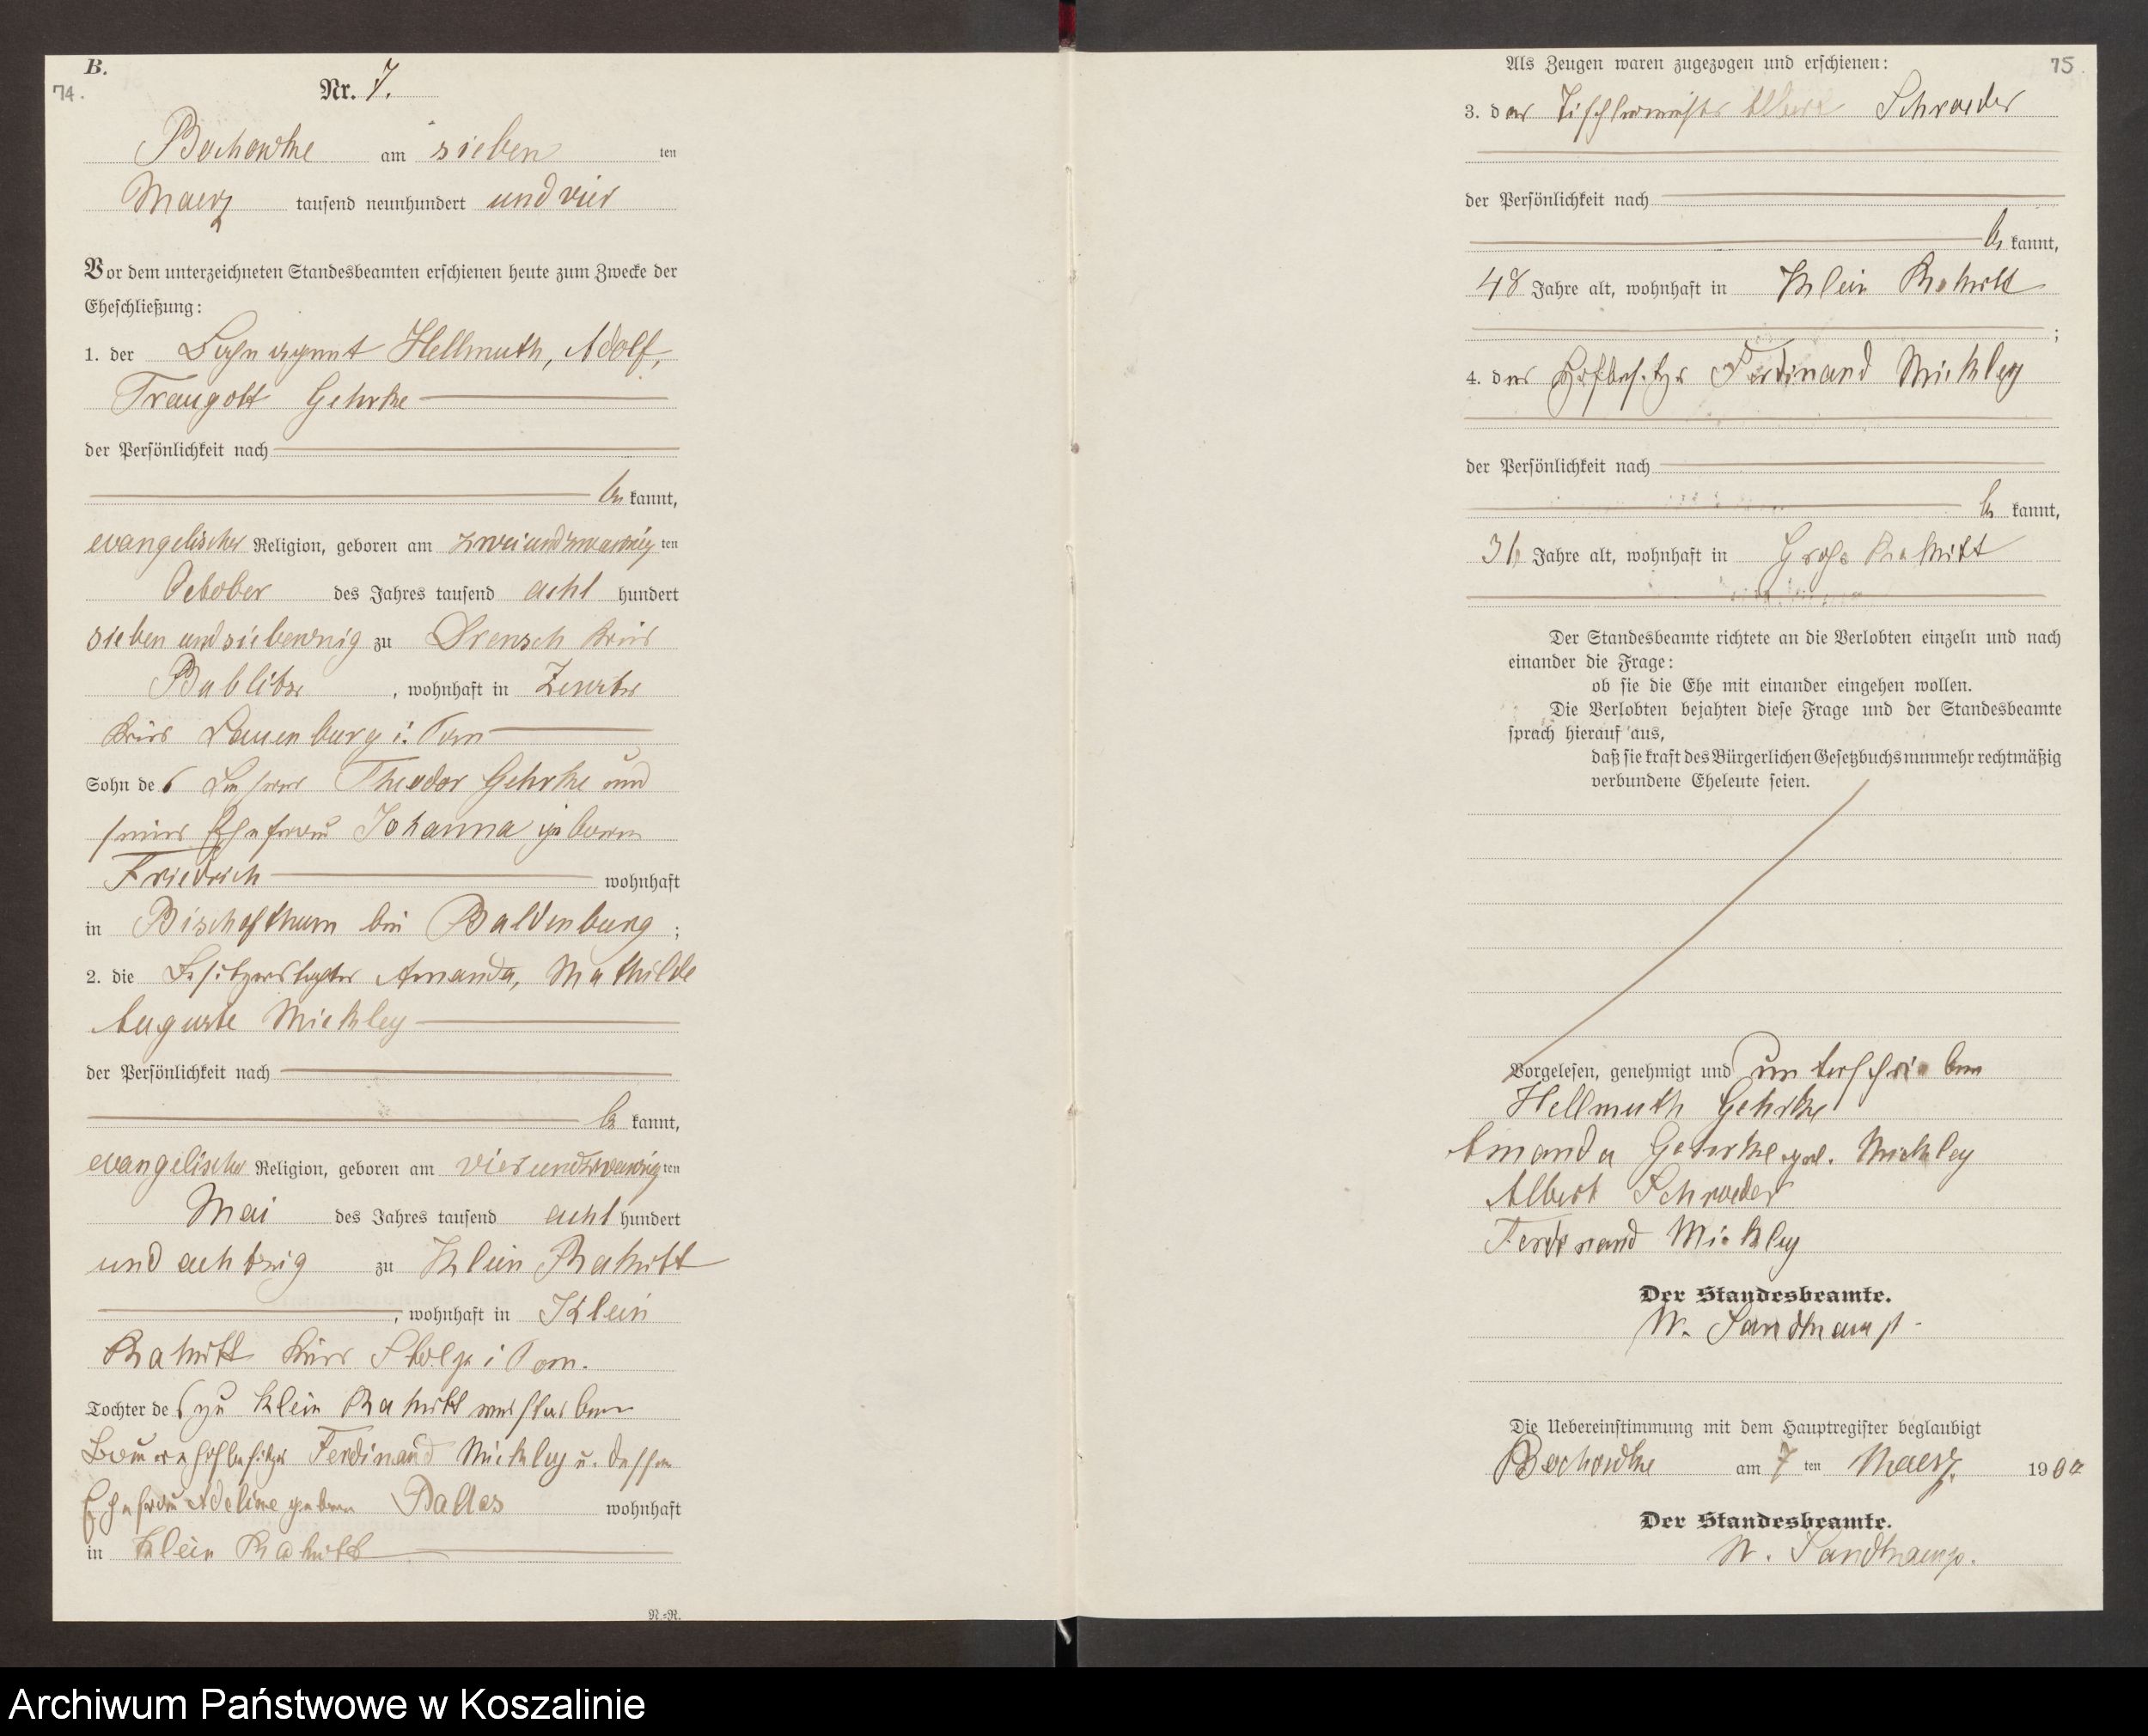 B.
74.
Nr. 7.
Bochowke am sieben ten
Maerz tausend neunhundert und vier
Vor dem unterzeichneten Standesbeamten erschienen heute zum Zwecke der
Eheschließung:
1. der Hellmuth, Adolf,
Traugott Gehrke
der Persönlichkeit nach
be kannt,
evangelischer Religion, geboren am zweiundzwanzig ten
October des Jahres tausend acht hundert
sieben und siebenzig zu Drensch Kreis
Bublitz, wohnhaft in
Kreis Lauenburg i. Pom
Sohn des Lehrers Theodor Gehrke und
seiner Ehefrau Johanna geboren
Friedrich wohnhaft
in Bischofthum bei Baldenburg;
2. die Besitzerstochter Amanda, Mathilde
Auguste Mickley
der Persönlichkeit nach
be kannt,
evangelischer Religion, geboren am vierundzwanzig ten
Mai des Jahres tausend acht hundert
und achtzig zu Klein Rakitt
, wohnhaft in Klein
Rakitt Kreis Stolp i Pom.
Tochter des zu Klein Rakitt verstorbenen
Bauernhofbesitzers Ferdinand Mickley u. dessen
Ehefrau Adeline geboren Dallas wohnhaft
in Klein Rakitt
N.-R.
Als Zeugen waren zugezogen und erschienen:
75.
3. der Tischlermeister Albert Schroeder
der Persönlichkeit nach
be kannt,
48 Jahre alt, wohnhaft in Klein Rakitt
;
4. der Hofbesitzer Ferdinand Mickley
der Persönlichkeit nach
be kannt,
Jahre alt, wohnhaft in Groß Rakitt
Der Standesbeamte richtete an die Verlobten einzeln und nach
einander die Frage:
ob sie die Ehe mit einander eingehen wollen.
Die Verlobten bejahten diese Frage und der Standesbeamte
sprach hierauf aus,
daß sie kraft des Bürgerlichen Gesetzbuchs nunmehr rechtmäßig
verbundene Eheleute seien.
Vorgelesen, genehmigt und unterschrieben
Hellmuth Gehrke
Amanda Gehrke geb. Mickley
Albert Schroeder
Ferdinand Mickley
Der Standesbeamte.
W. Sandkamp.
Die Uebereinstimmung mit dem Hauptregister beglaubigt
Bochowke am 7 ten Maerz 1904
Der Standesbeamte.
W. Sandkamp.
Archiwum Państwowe w Koszalinie